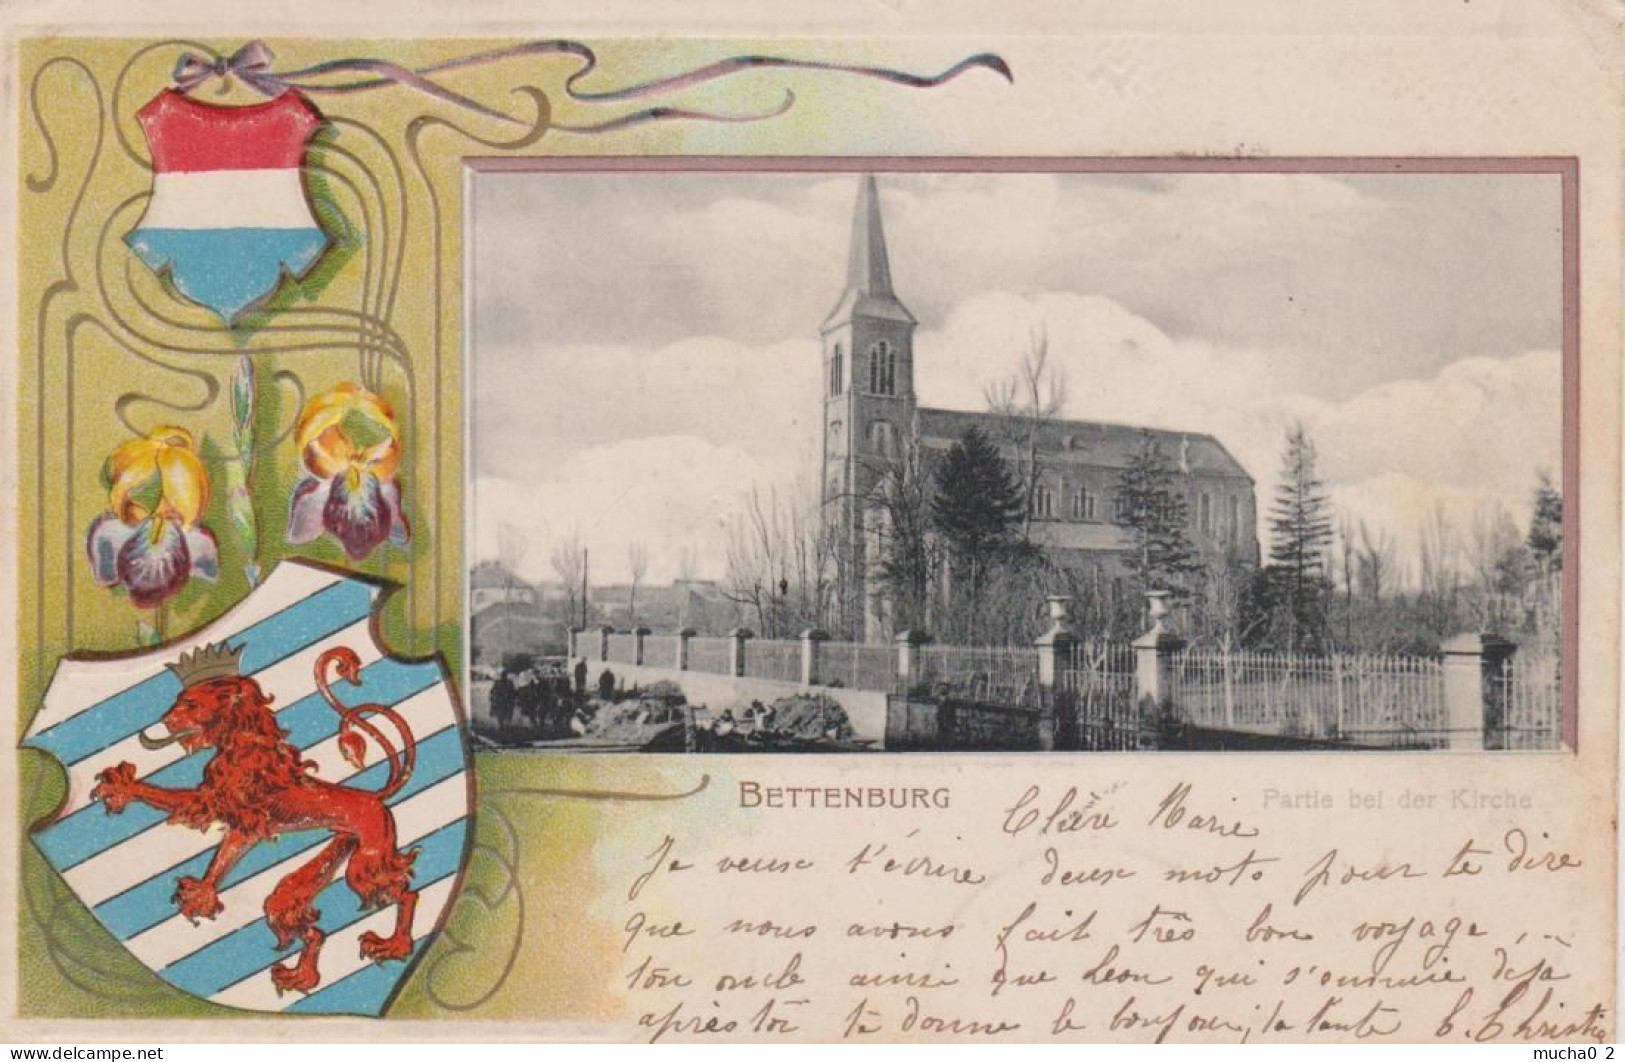 BETTENBURG
Partie bei der Kirche
Claire Marie
Je veux t'écrire deux mots pour te dire
que nous avons fait très bon voyage,
ton oncle ainsi que Leon qui s'ennuie deja
après toi te donne le bonjour, ta tante C. Christie
delcampe.net
mucha0_2